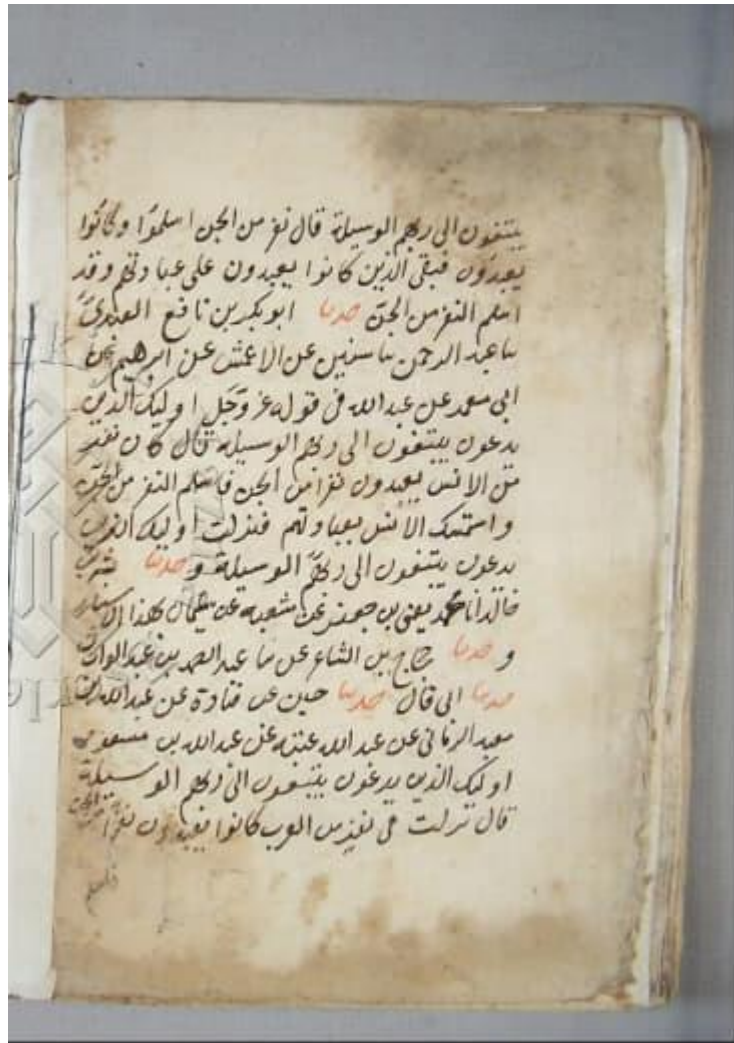 يبتغون الى ربهم الوسيلة قال نفر من الجن اسلموا وكانوا
يعبدون فبقى الذين كانوا يعبدون على عبادتهم وقد
اسلم النفر من الجن حدثنا ابو بكر بن نافع العبدى
نا عبد الرحمن نا سفين عن الاعمش عن ابرهيم عن
ابى معمر عن عبد الله فى قوله عز وجل اوليك الذين
يدعون يبتغون الى ربهم الوسيلة قال كان نفر
من الانس يعبدون نفرا من الجن فاسلم النفر من الجن
واستمسك الانس بعبادتهم فنزلت اوليك الذين
يدعون يبتغون الى ربهم الوسيلة وحدثنا بشر بن
خالد انا محمد يعنى بن جعفر عن شعبه عن سليمان بهذا الاسناد
و حدثنا حجاج بن الشاعر نا عبد الصمد بن عبد الوارث
حدثنا ابى قال حدثنا حسين عن قتادة عن عبد الله بن
معبد الزمانى عن عبد الله عتبه عن عبد الله بن مسعود
اوليك الذين يدعون يبتغون الى ربهم الوسيلة
قال نزلت فى نفر من العرب كانوا يعبدون نفرا من الجن
فاسلم